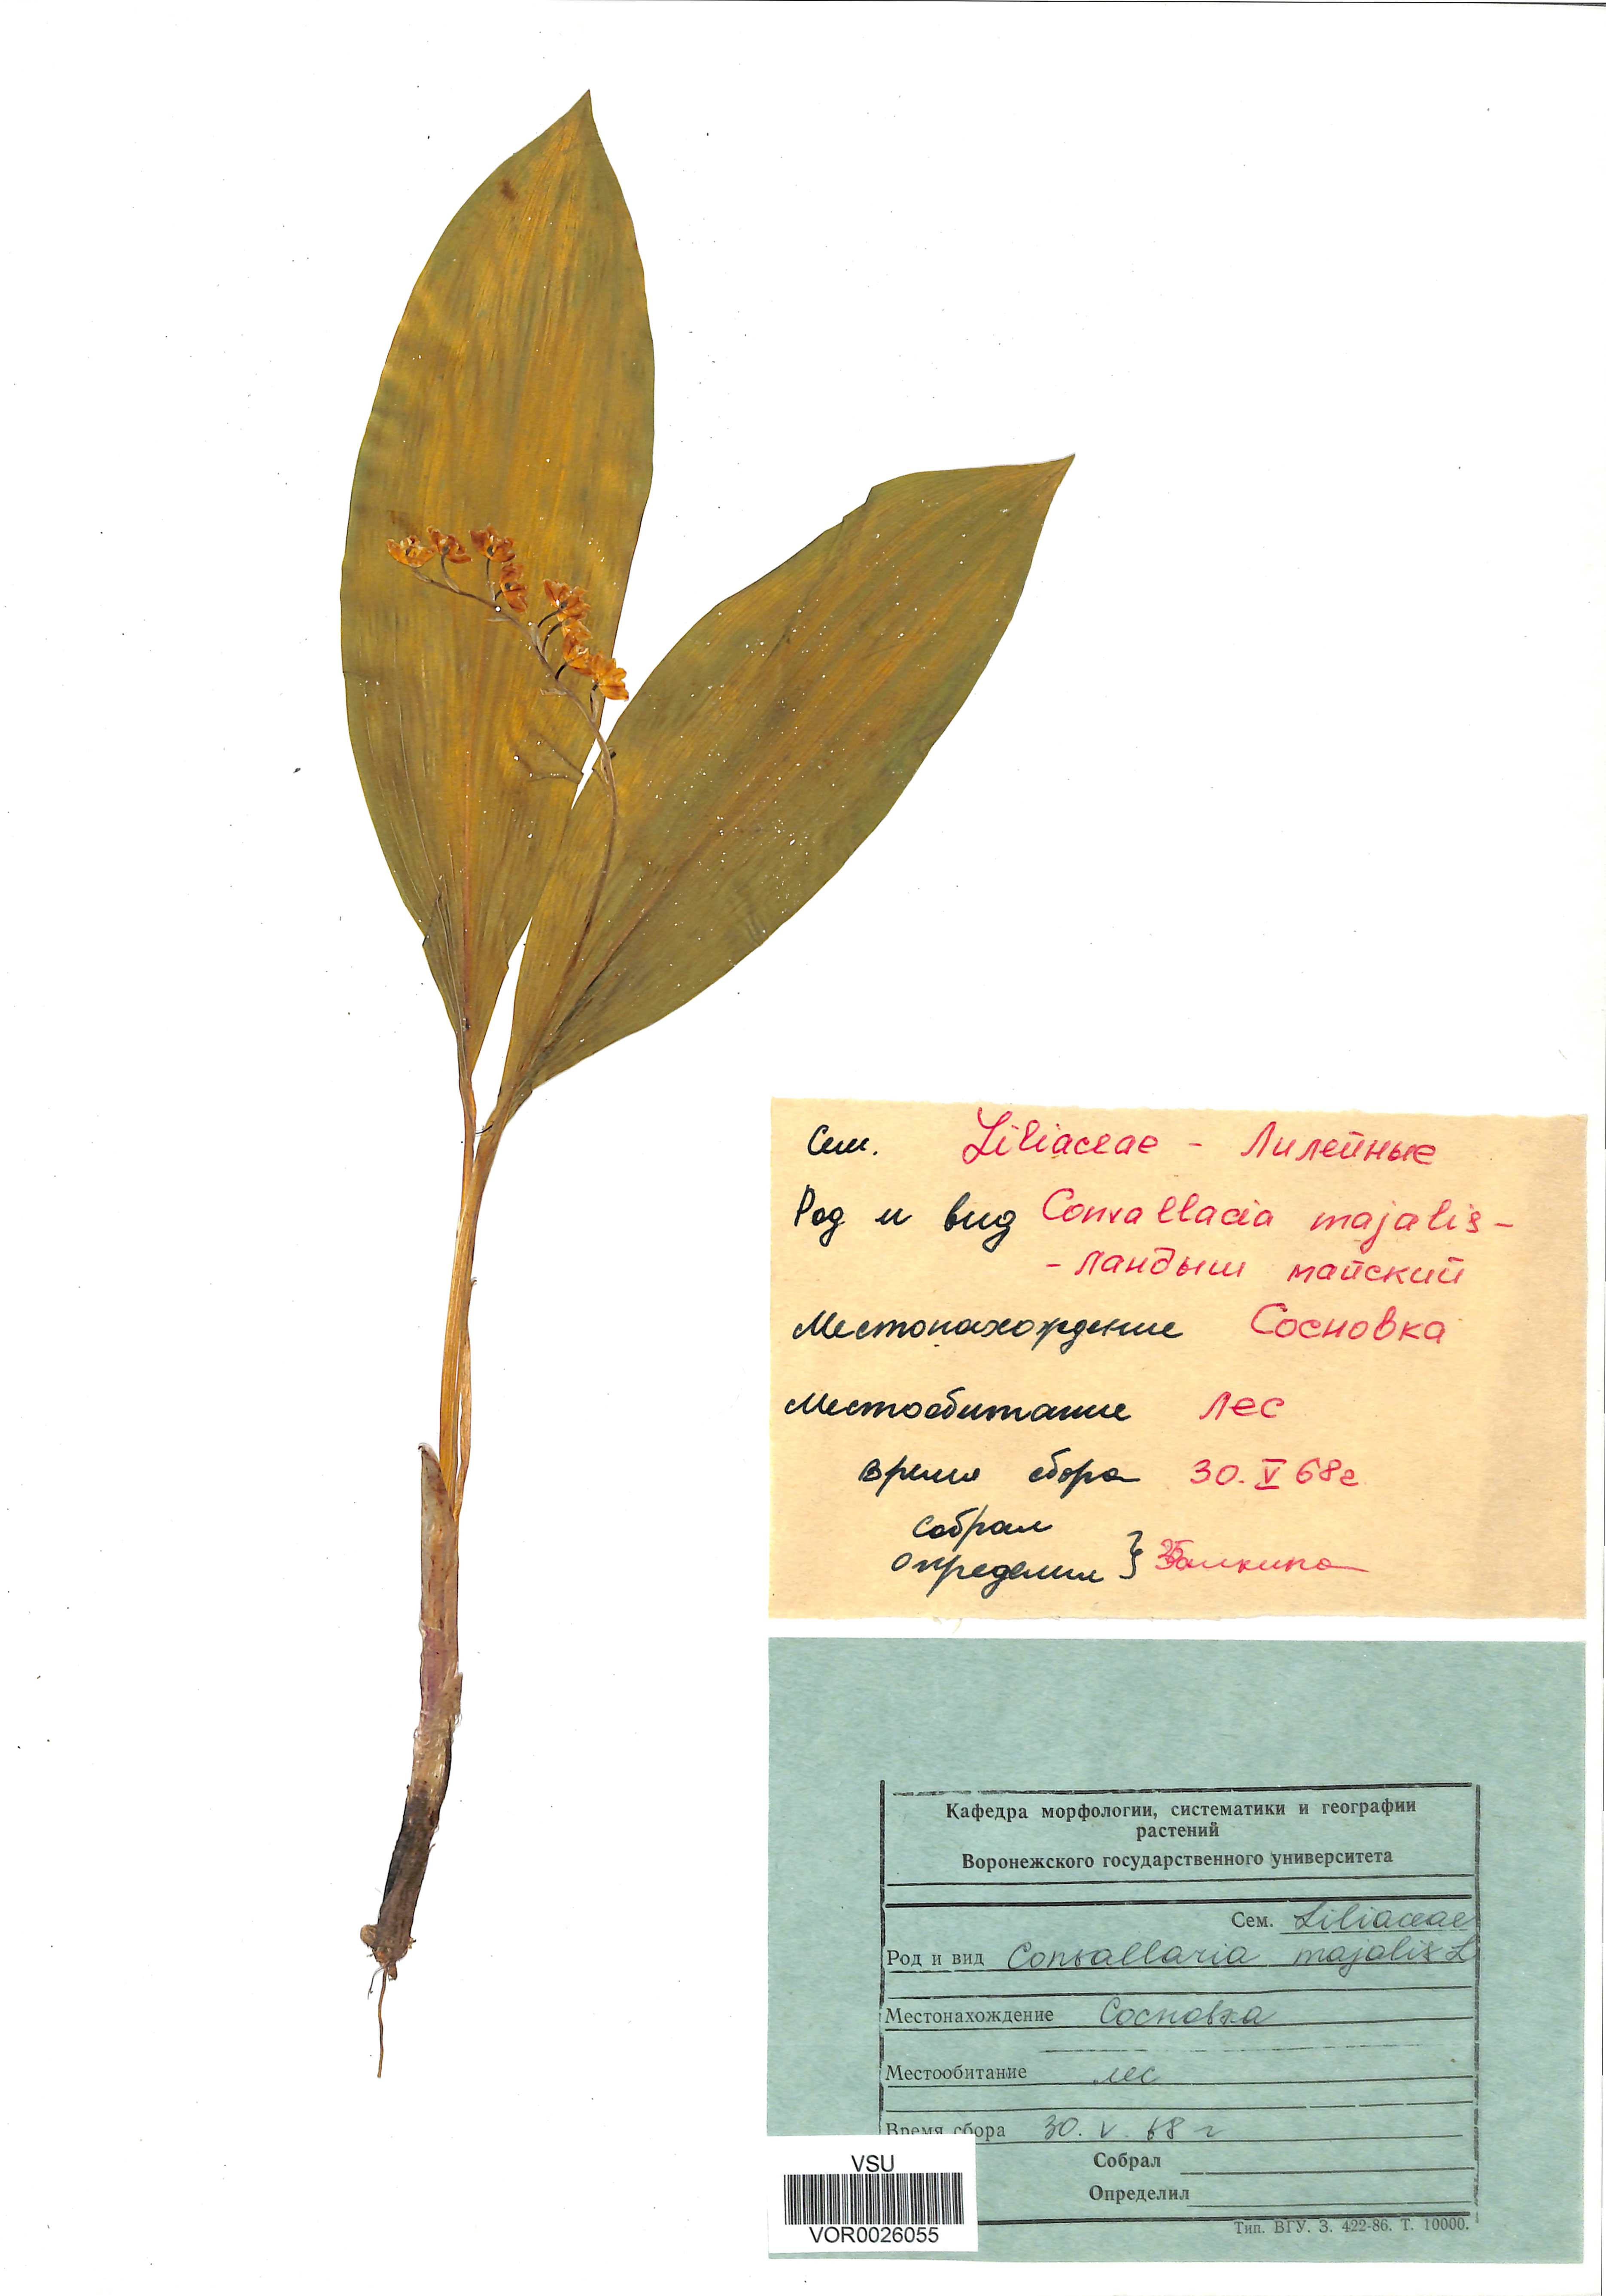 Сем. Liliaceae - Лилейные
Род и вид Convallacia majalis -
- Ландыш майский
Местонахождение Сосновка
Местообитание лес
время сбора 30. V 68г
собрал
определил }
Кафедра морфологии, систематики и географии
растений
Воронежского государственного университета
Сем. Liliaceae
Род и вид Convallaria majalis L
Местонахождение Сосновка
Местообитание лес
Время сбора 30. V. 68 г
Собрал
Определил
Тип. ВГУ. З. 422-86. Т. 10000.
VSU
VOR0026055